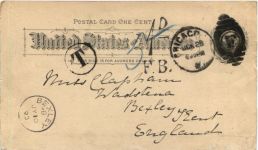 POSTAL CARD ONE CENT
United States
T
F.B.
CHICAGO
Miss Clapham
Wadstena
Bexley Kent
England
BEXLEY